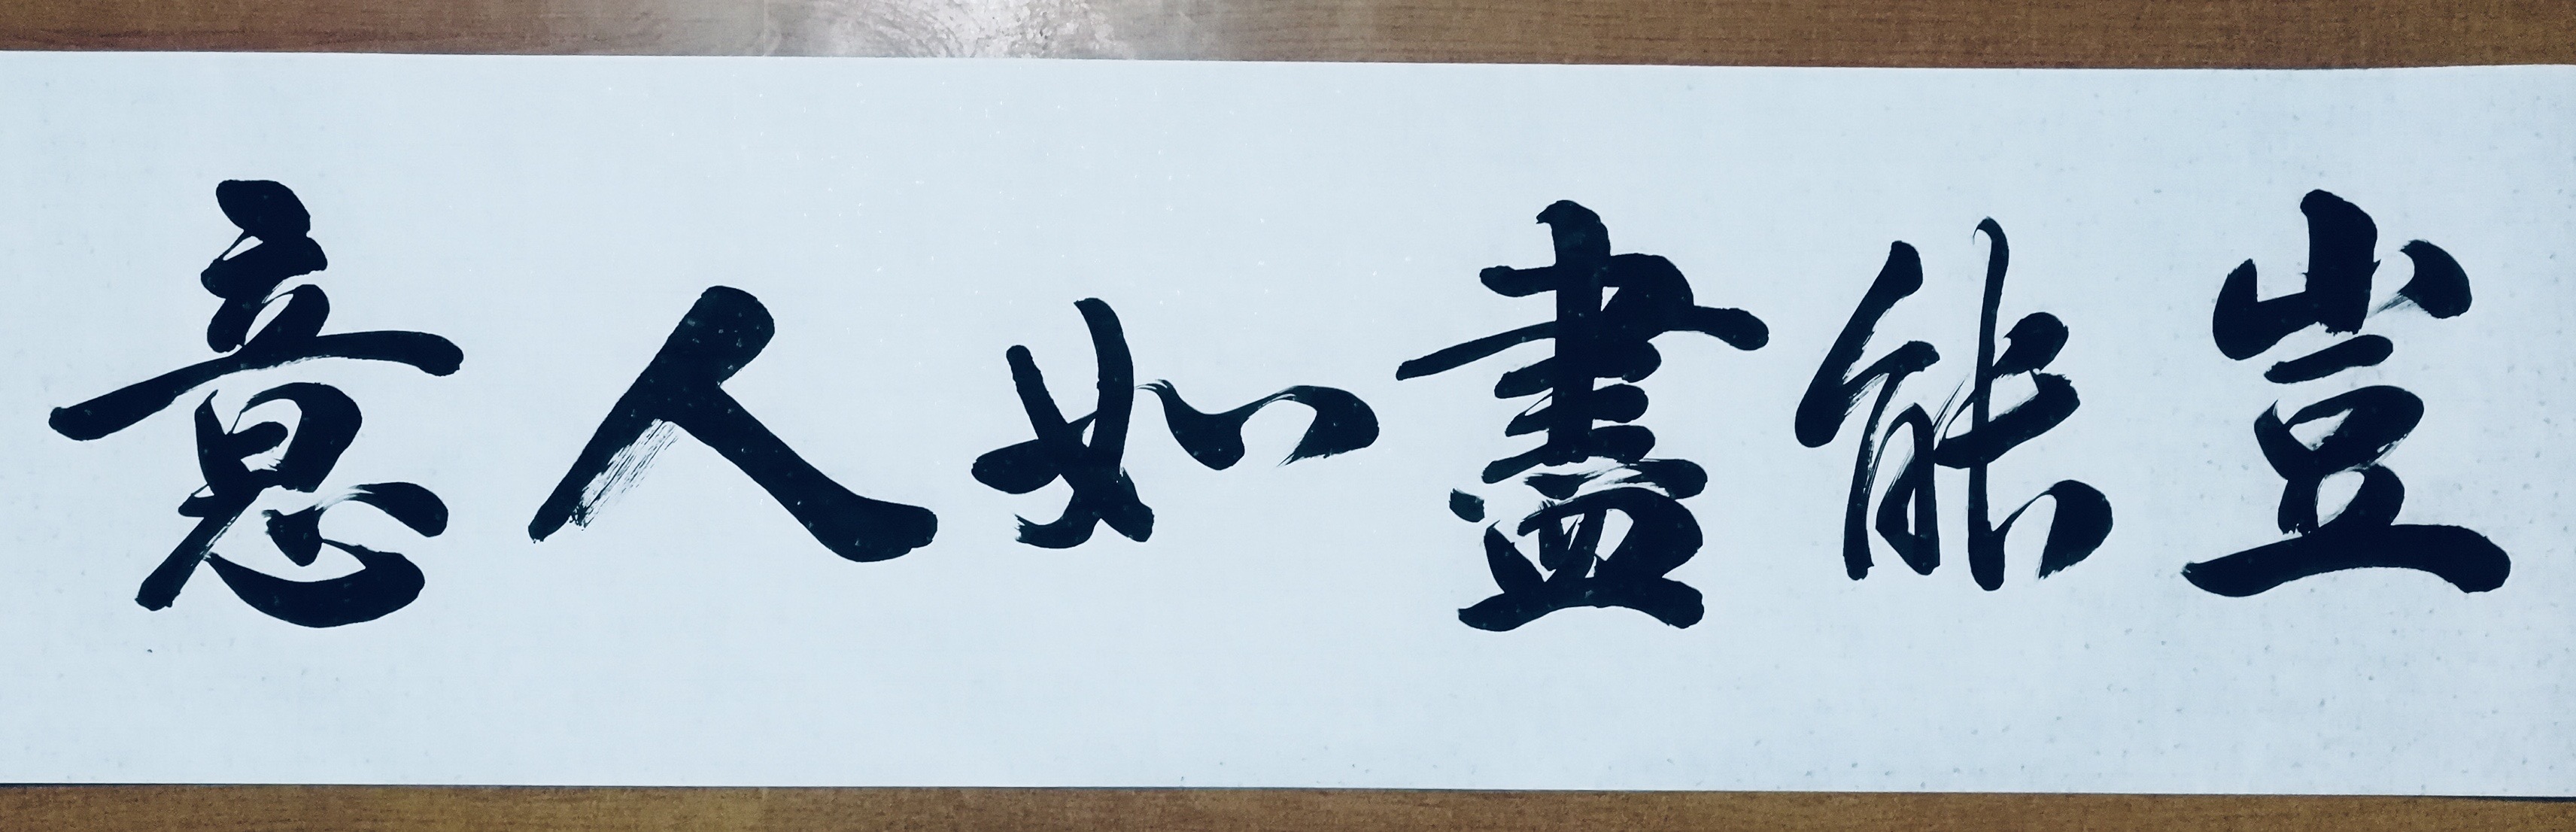 豈能盡如人意